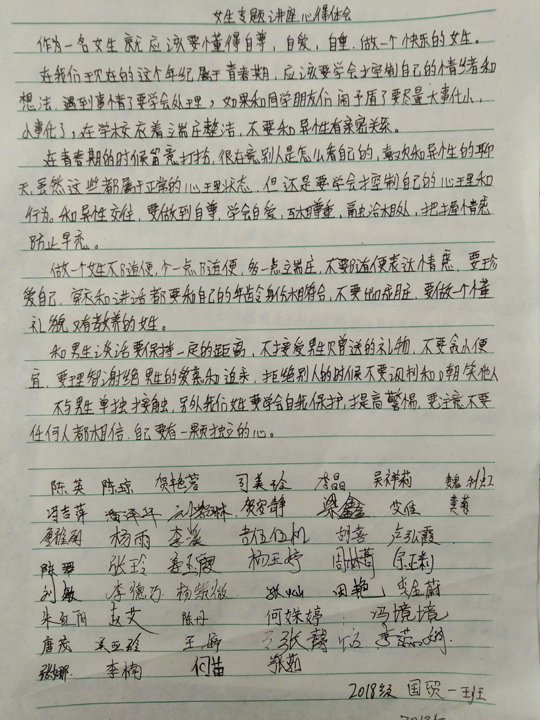 女生专题讲座心得体会
作为一名女生就应该要懂得自尊，自爱，自重，做一个快乐的女生。
在我们现在的这个年纪属于青春期，应该要学会控制自己的情绪和
想法，遇到事情了要学会处理；如果和同学朋友们闹矛盾了要尽量大事化小，
小事化了；在学校衣着端庄整洁，不要和异性有亲密关系。
在青春期的时候留意打扮，很在意别人是怎么看自己的，喜欢和异性的聊
天，虽然这些都属于正常的心理状态，但还是要学会控制自己的心理和
行为。和异性交往，要做到自尊，学会自爱，互相尊重，融洽相处，把握情感
防止早恋。
做一个女生不随便，少一点随便，多一点端庄，不要随便表达情感，要珍
爱自己，穿衣和讲话都要和自己的年龄身份相符合，不要出口成脏，要做一个懂
礼貌，又有教养的女生。
和男生谈话要保持一定的距离，不接受男生欠赠送的礼物，不要贪小便
宜，要理智谢绝男生的爱意和追求，拒绝别人的时候不要讽刺和嘲笑他人
不与男生单独接触，另外我们女生要学会自我保护，提高警惕，要注意不要
任何人都相信，自己要有一颗独立的心。
陈英 陈琼 贺艳蓉 司美玲 李晶 吴祥莉
冯吉萍 梁鑫 艾佳
杨雨 胡喜 卢弘霞
张玲 杨玉婷
刘敏 李德巧
赵艾 陈丹 何姝婷 冯境境
唐茂 王
张娜 李楠 何苗 蔡茹
2018级 国贸一班